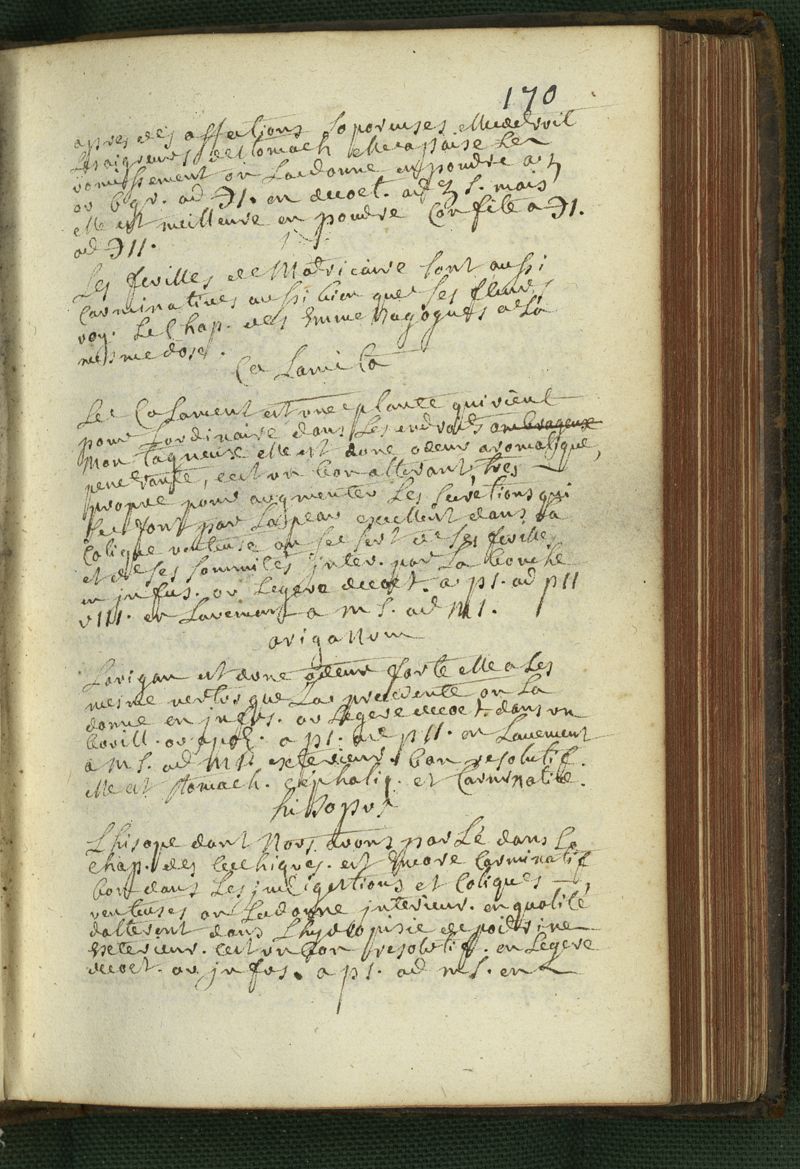 170
apres des affections soporeuses elle detruit
les aigreurs d'estomach elle apaise le
vomissement on la donne en poudre a
ou 6 gr. ad ℈1. en decoct. ad ʒ s. mais
elle est meilleure en poudre Confite a ℈1.
ad ℈11.
Les feuilles de Matricaire sont aussi
Carminatives aussi bien que ses fleurs
voy. Le Chap. des Emmenagogues a La
mesme dose.
Calamita
Le Calament est une plante qui vient
pour Lordinaire dans Les endroits ombrageux
Montagneuse elle est dune odeur aromatique,
penetrante, cest un bon alterant, tres
propre pour augmenter Les secretions qui
se font par La peau excellent dans La
Colique venteuse on se sert de ses feuilles
et de ses sommités inter. par La bouche
en infus. ou Legere decoct. a p1. ad p11
v111. en Lavement a m s. ad m1.
origanum
Lorigan est dune odeur forte elle a Les
mesme vertus que La precedente on La
donne en infus. ou Legere decoct. dans un
bouill. ou apoz. a p1. ad p11. en Lavement
a m s. ad m1. exterieur. bon resolutif.
elle est stomach. cephaliq. et Carminative.
hisopus
Lhisope dont Nous avons parLé dans Le
chap. des bechiques. est encore Carminatif
bon dans Les indigestions et Coliques
venteuses on La donne interieur. en qualité
dalterant dans Lhydropisie de poictrine
exterieur. cest un bon resolutif. en Legere
decoct. ou infus. a p1. ad m s. en